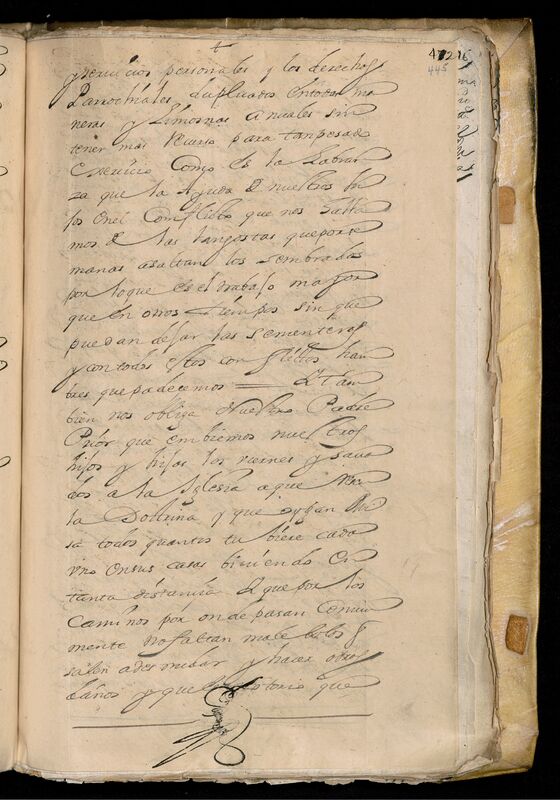 472
445
y seruicios personales y los derechos
Parrochiales duplicados entodas ma
neras y Limosnas anuales sin
tener mas Recurso para tan pesado
exersicio Como es la Labran
za que la Ayuda de nuestros hi
jos en el Conflicto que nos halla
mos de las langostas que por se
manas asaltan los sembrados
por lo que es el trabajo mayor
que en otros tiempos sin que
puedan dejar las sementeras
y con todos estos conflictos ham
bres que padecemos = Y tam
bien nos obliga Nuestro Padre
Prior que embiemos nuestros
hijos y hijas los viernes y sava
dos a la Yglesia a que
la Doctrina y que oygan Mi
sa todos quantos tubiere cada
vno en sus casas biuiendo en
tanta distancia Y que por los
caminos por onde pasan Comun
mente no faltan male bolos q
salen a desnudar y hacer otros
daños y que notorio que